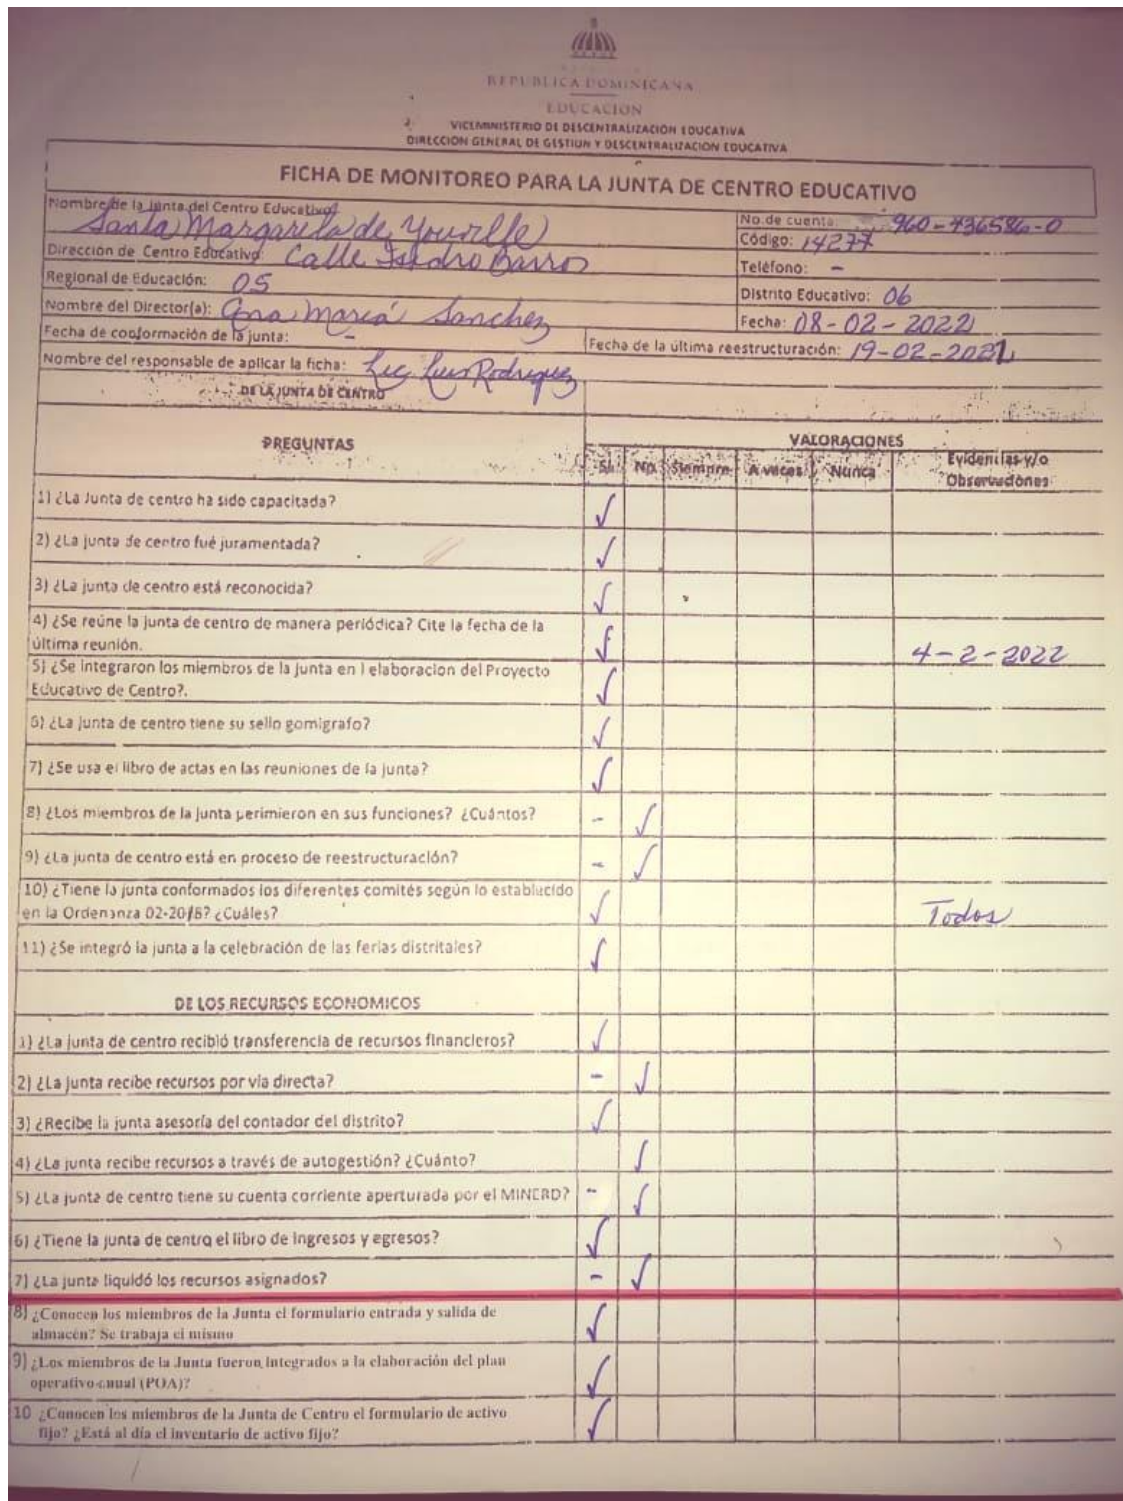 REPUBLICA DOMINICANA
EDUCACION
VICEMINISTERIO DE DESCENTRALIZACION EDUCATIVA
DIRECCION GENERAL DE GESTION Y DESCENTRALIZACION EDUCATIVA
FICHA DE MONITOREO PARA LA JUNTA DE CENTRO EDUCATIVO
Nombre de la Junta del Centro Educativo: Santa Margarita de Youville
No. de cuenta: 960-436586-0
Código: 14277
Dirección de Centro Educativo: Calle Isidro Barros
Teléfono: -
Regional de Educación: 05
Distrito Educativo: 06
Nombre del Director(a): Ana María Sanchez
Fecha: 08-02-2022
Fecha de conformación de la junta: -
Fecha de la última reestructuración: 19-02-2021
Nombre del responsable de aplicar la ficha: Lic Luis Rodriguez
DE LA JUNTA DE CENTRO
PREGUNTAS
VALORACIONES
Si No Siempre A veces Nunca Evidencias y/o Observaciones
1) ¿La Junta de centro ha sido capacitada? ✓
2) ¿La junta de centro fué juramentada? ✓
3) ¿La junta de centro está reconocida? ✓
4) ¿Se reúne la junta de centro de manera periódica? Cite la fecha de la
última reunión. ✓ 4-2-2022
5) ¿Se integraron los miembros de la junta en l elaboracion del Proyecto
Educativo de Centro?. ✓
6) ¿La junta de centro tiene su sello gomigrafo? ✓
7) ¿Se usa el libro de actas en las reuniones de la junta? ✓
8) ¿Los miembros de la junta perimieron en sus funciones? ¿Cuántos? - ✓
9) ¿La junta de centro está en proceso de reestructuración? - ✓
10) ¿Tiene la junta conformados los diferentes comités según lo establecido
en la Ordenanza 02-2018? ¿Cuáles? ✓ Todos
11) ¿Se integró la junta a la celebración de las ferias distritales? ✓
DE LOS RECURSOS ECONOMICOS
1) ¿La junta de centro recibió transferencia de recursos financieros? ✓
2) ¿La junta recibe recursos por vía directa? - ✓
3) ¿Recibe la junta asesoría del contador del distrito? ✓
4) ¿La junta recibe recursos a través de autogestión? ¿Cuánto? ✓
5) ¿La junta de centro tiene su cuenta corriente aperturada por el MINERD? - ✓
6) ¿Tiene la junta de centro el libro de ingresos y egresos? ✓
7) ¿La junta liquidó los recursos asignados? - ✓
8) ¿Conocen los miembros de la Junta el formulario entrada y salida de
almacén? Se trabaja el mismo ✓
9) ¿Los miembros de la Junta fueron integrados a la elaboración del plan
operativo anual (POA)? ✓
10 ¿Conocen los miembros de la Junta de Centro el formulario de activo
fijo? ¿Está al día el inventario de activo fijo? ✓